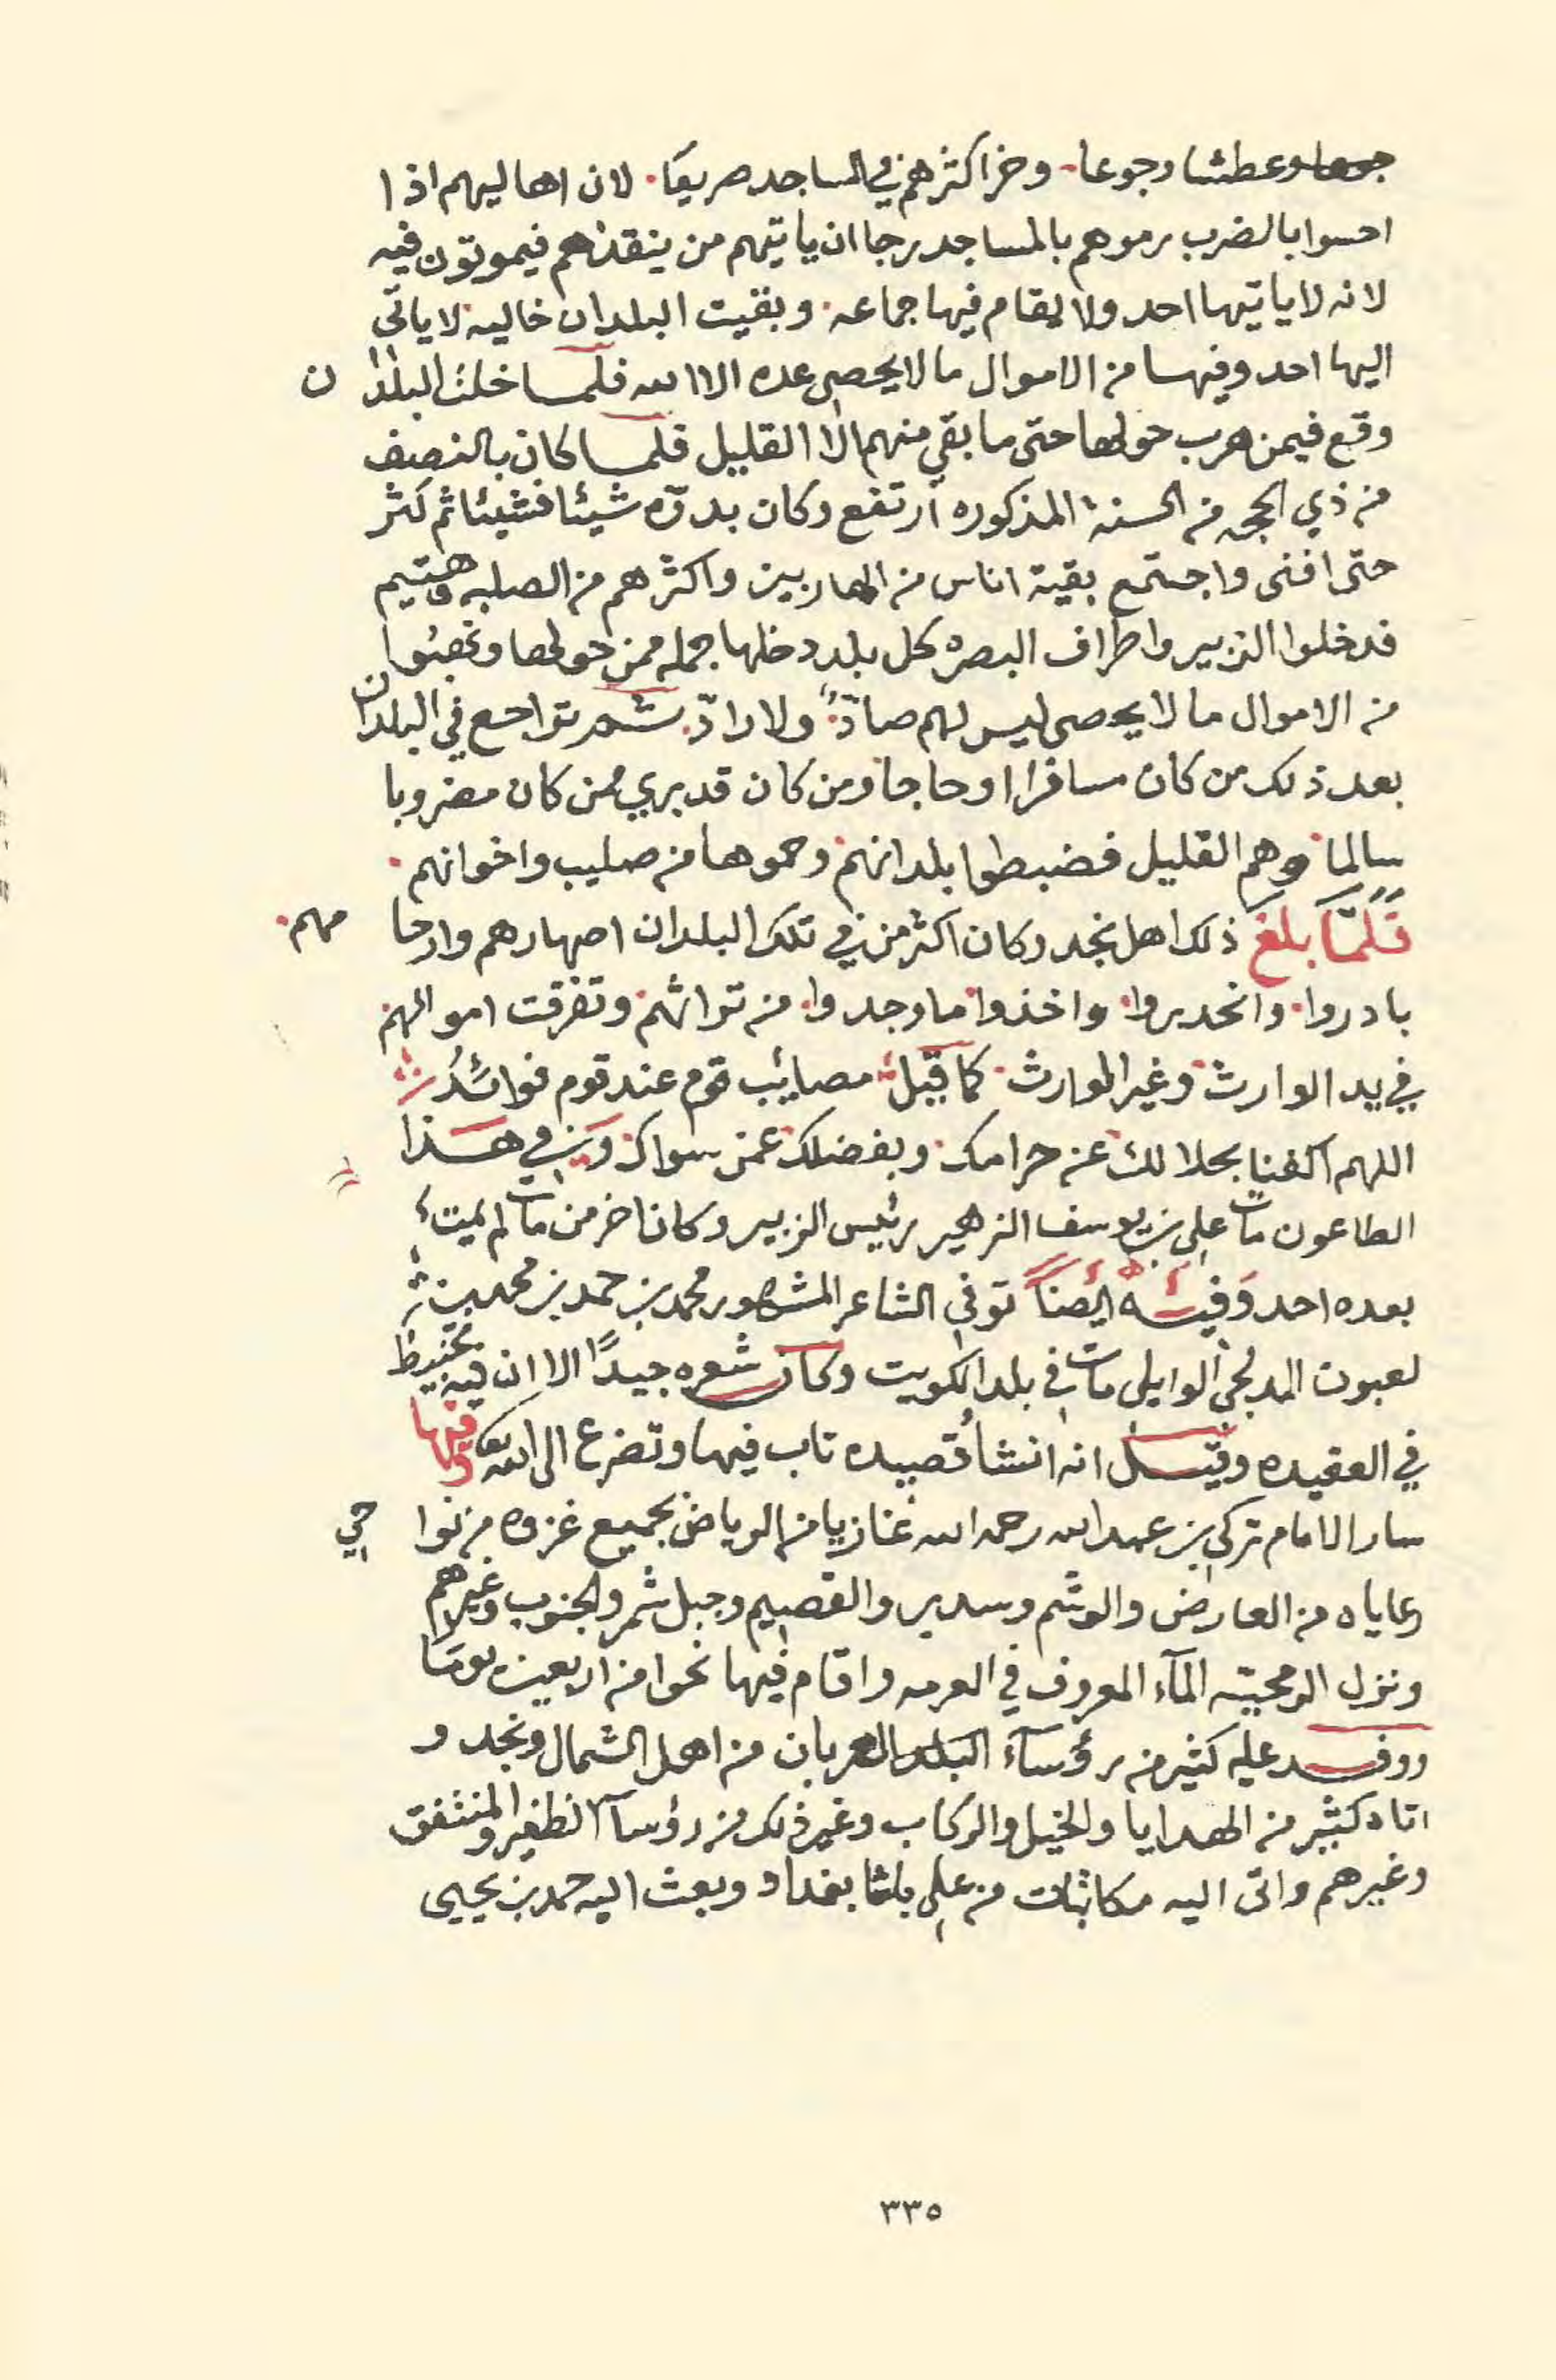 جوعا وعطشا وجوعا. وخر اكثرهم في المساجد صريعا. لان اهاليهم اذا
احسوا بالضرب رموهم بالمساجد رجا ان ياتيهم من ينقذهم فيموتون فيه
لانه لا ياتيها احد ولا يقام فيها جماعه. وبقيت البلدان خاليه لا ياتي
اليها احد وفيها من الاموال ما لا يحصي عده الا الله فلما خلت البلدان
وقع فيمن هرب حولها حتى ما بقي منهم الا القليل فلما كان بالنصيف
من ذي الحجه من السنة المذكوره ارتفع وكان بدوّه شيئا فشيئا ثم كثر
حتى افنى واجتمع بقية اناس من الهاربين واكثرهم من الصلبه وهتيم
فدخلوا الزبير واطراف البصره كل بلد دخلها جمله ممن حولها ونهبوا
من الاموال ما لا يحصى ليس لهم صادّ ولا رادّ. ثم تراجع في البلدان
بعد ذلك من كان مسافرا او حاجا ومن كان قد بري ممن كان مضروبا
سالما وهم القليل فضبطوا بلدانهم وحموها من صليب واخوانهم.
فلمّا بلغ ذلك اهل نجد وكان اكثر من في تلك البلدان اصهارهم وارحامهم.
بادروا. وانحدروا. واخذوا ما وجدوا. من تراثهم. وتفرقت اموالهم
في يد الوارث وغير الوارث. كما قيل مصائب قوم عند قوم فوائد
اللهم اكفنا بحلالك عن حرامك. وبفضلك عمن سواك. وفي هذا
الطاعون مات علي بن يوسف الزهير رئيس الزبير وكان اخر من مات لم يمت
بعده احد وفيه ايضاً توفي الشاعر المشهور محمد بن حمد بن محمد بن
لعبون المدلجي الوايلي مات في بلد الكويت وكان شعره جيدًا الا ان فيه تخبيط
في العقيده وقيل انه انشأ قصيده تاب فيها وتضرع الى الله وفيها
سار الامام تركي بن عبد الله رحمه الله غازيا من الرياض بجميع غزوه من نواحي
رعاياه من العارض والوشم وسدير والقصيم وجبل شمر والجنوب وغيرهم
ونزل الرمحيّه المآء المعروف في العرمه واقام فيها نحوا من اربعين يومًا
ووفد عليه كثير من رؤسآء العربان من اهل الشمال ونجد و
اتاه كثير من الهدايا والخيل والركاب وغير ذلك من رؤسآء الظفير والمنتفق
وغيرهم واتى اليه مكاتبات من علي باشا بغداد وبعث اليه حمد بن يحيى
٣٣٥